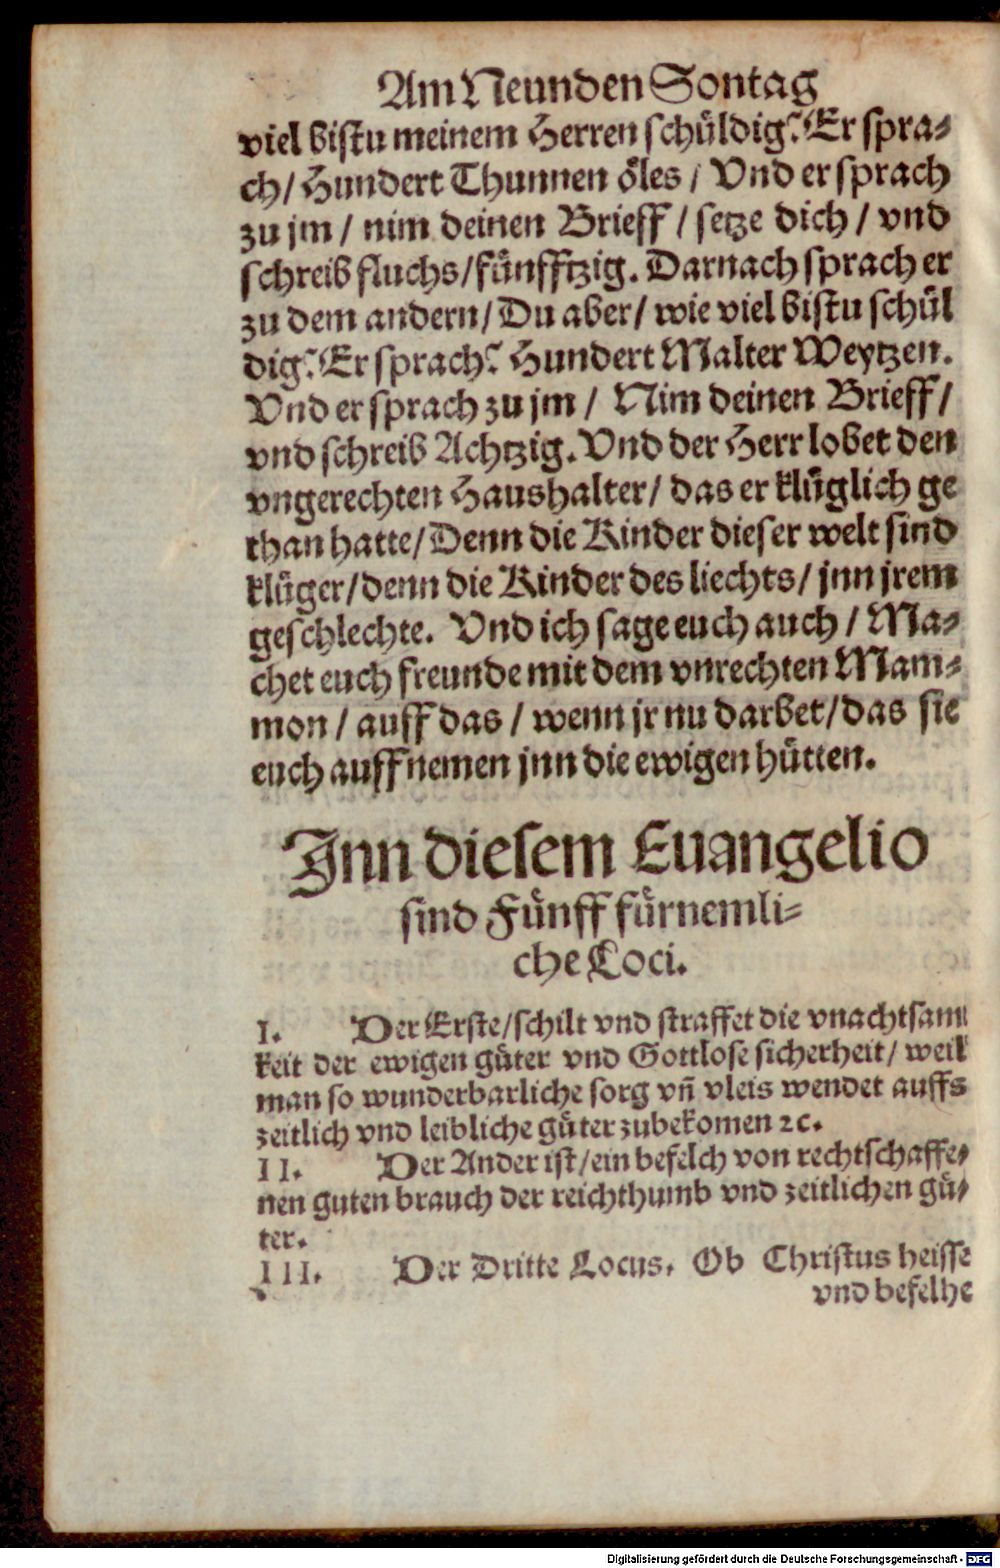 Am Neunden Sontag
viel bistu meinem Herren schüldig? Er spra⸗
ch/ Hundert Thunnen öles / Vnd er sprach
zu jm / nim deinen Brieff / setze dich / vnd
schreib fluchs/fünfftzig. Darnach sprach er
zu dem andern/ Du aber/ wie viel bistu schül
dig? Er sprach? Hundert Malter Weytzen.
Vnd er sprach zu jm / Nim deinen Brieff /
vnd schreib Achtzig. Vnd der Herr lobet den
vngerechten Haushalter/ das er klüglich ge
than hatte/ Denn die Kinder dieser welt sind
klüger/denn die Kinder des liechts/ jnn jrem
geschlechte. Vnd ich sage euch auch / Ma⸗
chet euch freunde mit dem vnrechten Mam⸗
mon / auff das / wenn jr nu darbet/das sie
euch auffnemen jnn die ewigen hütten.
Jnn diesem Euangelio
sind Fünff fürnemli⸗
che Loci.
I. Der Erste/schilt vnd straffet die vnachtsam
keit der ewigen güter vnd Gottlose sicherheit/ weil
man so wunderbarliche sorg vñ vleis wendet auffs
zeitlich vnd leibliche güter zubekomen ⁊c.
II. Der Ander ist/ein befelch von rechtschaffe⸗
nen guten brauch der reichthumb vnd zeitlichen gü⸗
ter.
III. Der Dritte Locus. Ob Christus heisse
vnd befelhe
Digitalisierung gefördert durch die Deutsche Forschungsgemeinschaft - DFG